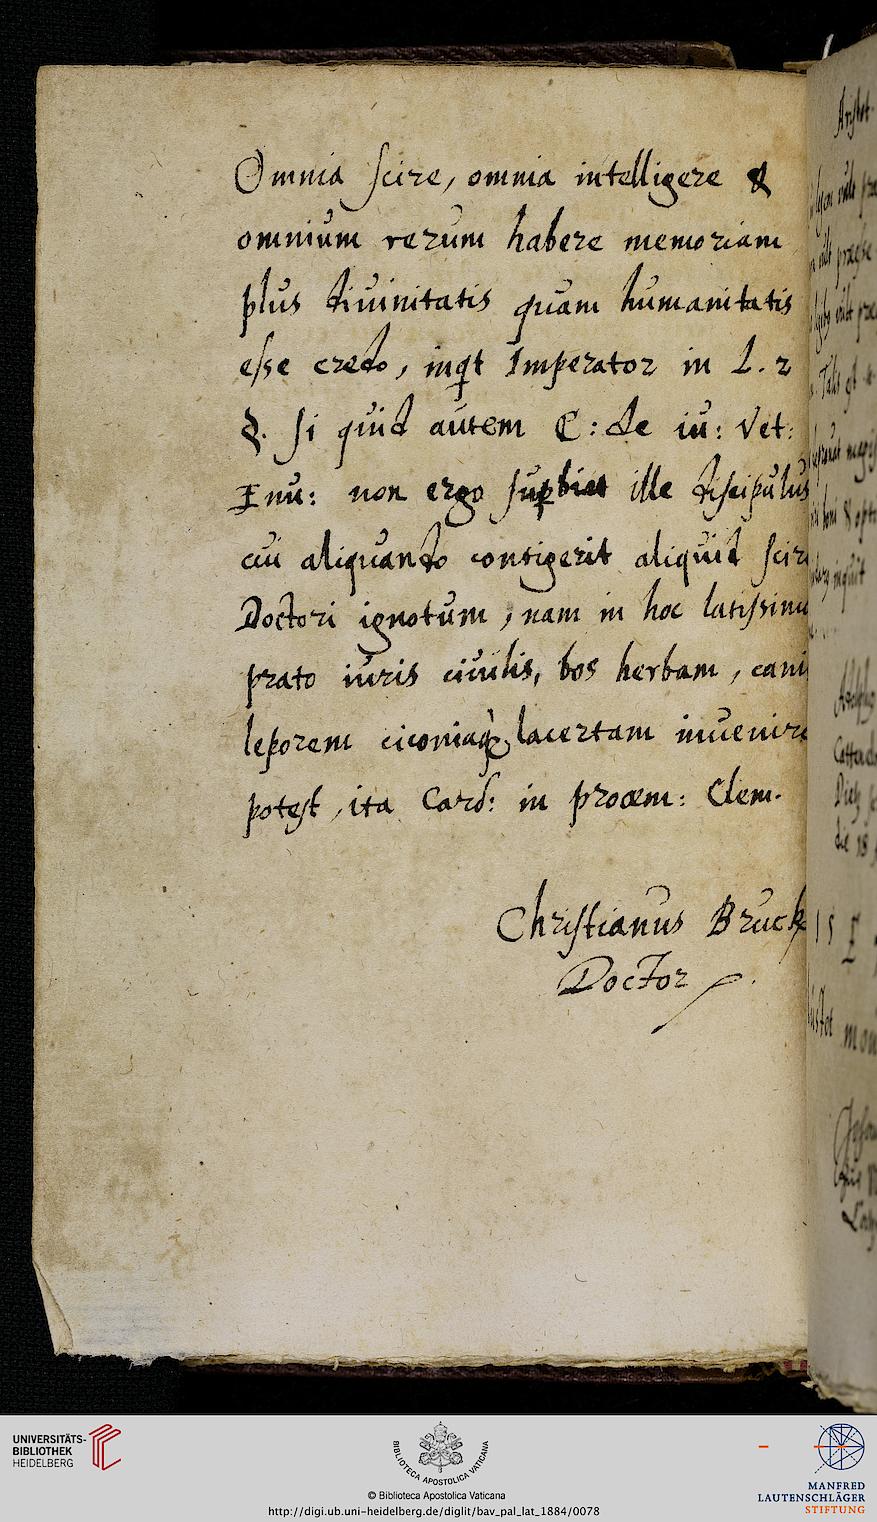 Omnia scire, omnia intelligere &
omnium rerum habere memoriam
plus divinitatis quam humanitatis
esse credo, inqt Imperator in L. 2
§. Si quid autem C: de iu: vet:
Enu: non ergo supbiat ille discipulus
cui aliquando contigerit aliquid scire
Doctori ignotum, nam in hoc latissimo
prato iuris civilis, bos herbam, canis
leporem ciconiaq; lacertam invenire
potest, ita Card: in prooem: Clem.
Christianus Bruck
Doctor
UNIVERSITÄTS-
BIBLIOTHEK
HEIDELBERG
BIBLIOTECA APOSTOLICA VATICANA
© Biblioteca Apostolica Vaticana
http://digi.ub.uni-heidelberg.de/diglit/bav_pal_lat_1884/0078
MANFRED
LAUTENSCHLÄGER
STIFTUNG